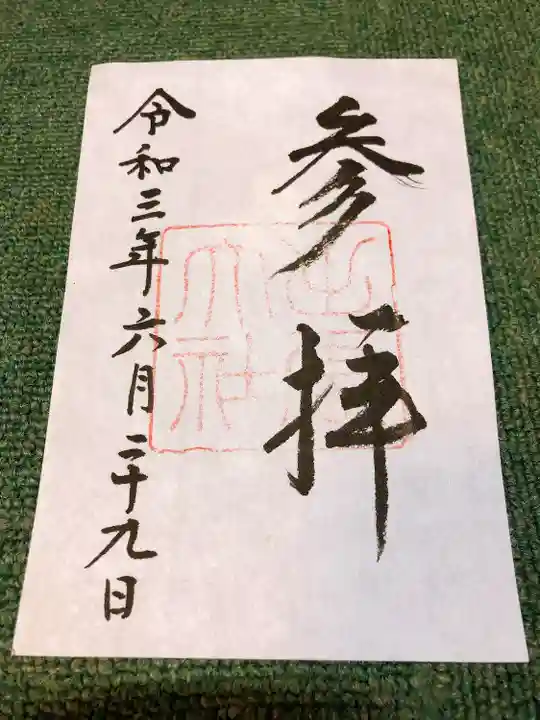 参拝
出雲
大社
令和三年六月二十九日